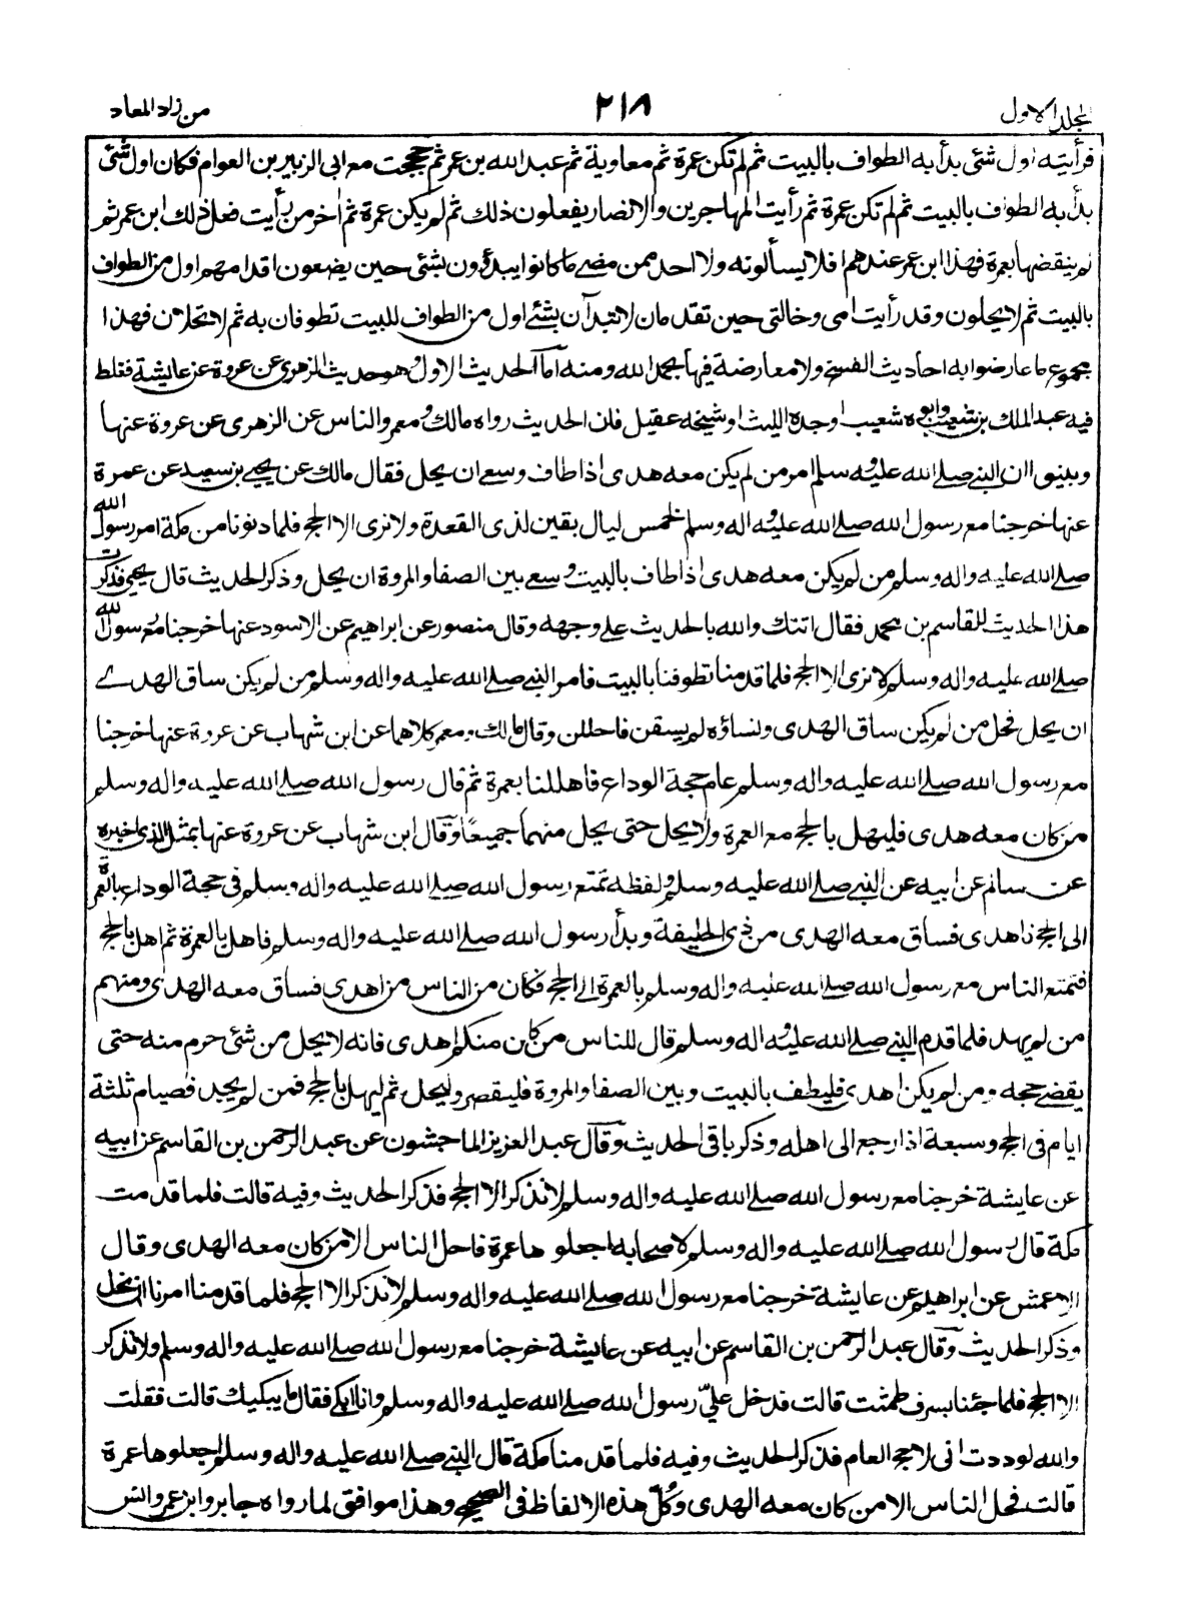 المجلد الاول
٢١٨
من زاد المعاد
فرأيته اول شئ بدأ به الطواف بالبيت ثم لم تكن عمرة ثم معاوية ثم عبد الله بن عمر ثم حججت مع ابى الزبير بن العوام فكان اول شئ
بدأ به الطواف بالبيت ثم لم تكن عمرة ثم رأيت المهاجرين والانصار يفعلون ذلك ثم لم يكن عمرة ثم اٰخر من رأيت فعل ذلك ابن عمر ثم
لم ينقضها بعمرة فهذا ابن عمر عندهم افلا يسألونه ولا احد ممن مضے ما كانوا يبدؤون بشئ حين يضعون اقدامهم اول من الطواف
بالبيت ثم لا يحلون وقد رأيت امى وخالتى حين تقدمان لا تبدآن بشئ اول من الطواف للبيت تطوفان به ثم لا تحلان فهذا
مجموع ما عارضوا به احاديث الفسخ ولا معارضة فيها بحمد الله ومنه اما الحديث الاول وهو حديث الزهرى عن عروة عن عايشة فغلط
فيه عبد الملك بن شعيب وابوه شعيب او جده الليث او شيخه عقيل فان الحديث رواه مالك ومعمر والناس عن الزهرى عن عروة عنها
وبينوا ان النبى صلے الله عليه وسلم امر من لم يكن معه هدى اذا طاف وسعے ان يحل فقال مالك عن يحيے بن سعيد عن عمرة
عنها خرجنا مع رسول الله صلے الله عليه واله وسلم لخمس ليال بقين لذى القعدة ولا نرى الا الحج فلما دنونا من مكة امر رسول الله
صلے الله عليه واله وسلم من لم يكن معه هدى اذا طاف بالبيت وسعے بين الصفا والمروة ان يحل وذكر الحديث قال يحيے فذكرت
هذا الحديث للقاسم بن محمد فقال اتتك والله بالحديث علے وجهه وقال منصور عن ابراهيم عن الاسود عنها خرجنا مع رسول الله
صلے الله عليه واله وسلم لا نرى الا الحج فلما قدمنا تطوفنا بالبيت فامر النبى صلے الله عليه واله وسلم من لم يكن ساق الهدے
ان يحل فحل من لم يكن ساق الهدى ونساؤه لم يسقن فاحللن وقال مالك ومعمر كلاهما عن ابن شهاب عن عروة عنها خرجنا
مع رسول الله صلے الله عليه واله وسلم عام حجة الوداع فاهللنا بعمرة ثم قال رسول الله صلے الله عليه واله وسلم
من كان معه هدى فليهل بالحج مع العمرة ولا يحل حتى يحل منهما جميعًا وقال ابن شهاب عن عروة عنها بمثل الذى اخبره
عن سالم عن ابيه عن النبى صلے الله عليه وسلم ولفظه تمتع رسول الله صلے الله عليه واله وسلم فى حجة الوداع بالعمرة
الى الحج فاهدى فساق معه الهدى من ذى الحليفة وبدأ رسول الله صلے الله عليه واله وسلم فاهل بالعمرة ثم اهل بالحج
فتمتع الناس مع رسول الله صلے الله عليه واله وسلم بالعمرة الى الحج فكان من الناس من اهدى فساق معه الهدى ومنهم
من لم يهد فلما قدم النبى صلے الله عليه واله وسلم قال للناس من كان منكم اهدى فانه لا يحل من شئ حرم منه حتى
يقضے حجه ومن لم يكن اهدى فليطف بالبيت وبين الصفا والمروة فليقصر وليحل ثم ليهل بالحج فمن لم يجد فصيام ثلثة
ايام فى الحج وسبعة اذا رجع الى اهله وذكر باقى الحديث وقال عبد العزيز الماجشون عن عبد الرحمن بن القاسم عن ابيه
عن عايشة خرجنا مع رسول الله صلے الله عليه واله وسلم لا نذكر الا الحج فذكر الحديث وفيه قالت فلما قدمت
مكة قال رسول الله صلے الله عليه واله وسلم لاصحابه اجعلوها عمرة فاحل الناس الا من كان معه الهدى وقال
الاعمش عن ابراهيم عن عايشة خرجنا مع رسول الله صلے الله عليه واله وسلم لا نذكر الا الحج فلما قدمنا امرنا ان نحل
وذكر الحديث وقال عبد الرحمن بن القاسم عن ابيه عن عايشة خرجنا مع رسول الله صلے الله عليه واله وسلم ولا نذكر
الا الحج فلما جئنا بسرف طمثت قالت فدخل علىّ رسول الله صلے الله عليه واله وسلم وانا ابكے فقال ما يبكيك قالت فقلت
والله لوددت انى لا احج العام فذكر الحديث وفيه فلما قدمنا مكة قال النبى صلے الله عليه واله وسلم اجعلوها عمرة
قالت فحل الناس الا من كان معه الهدى وكل هذه الالفاظ فى الصحيح وهذا موافق لما رواه جابر وابن عمر وانس